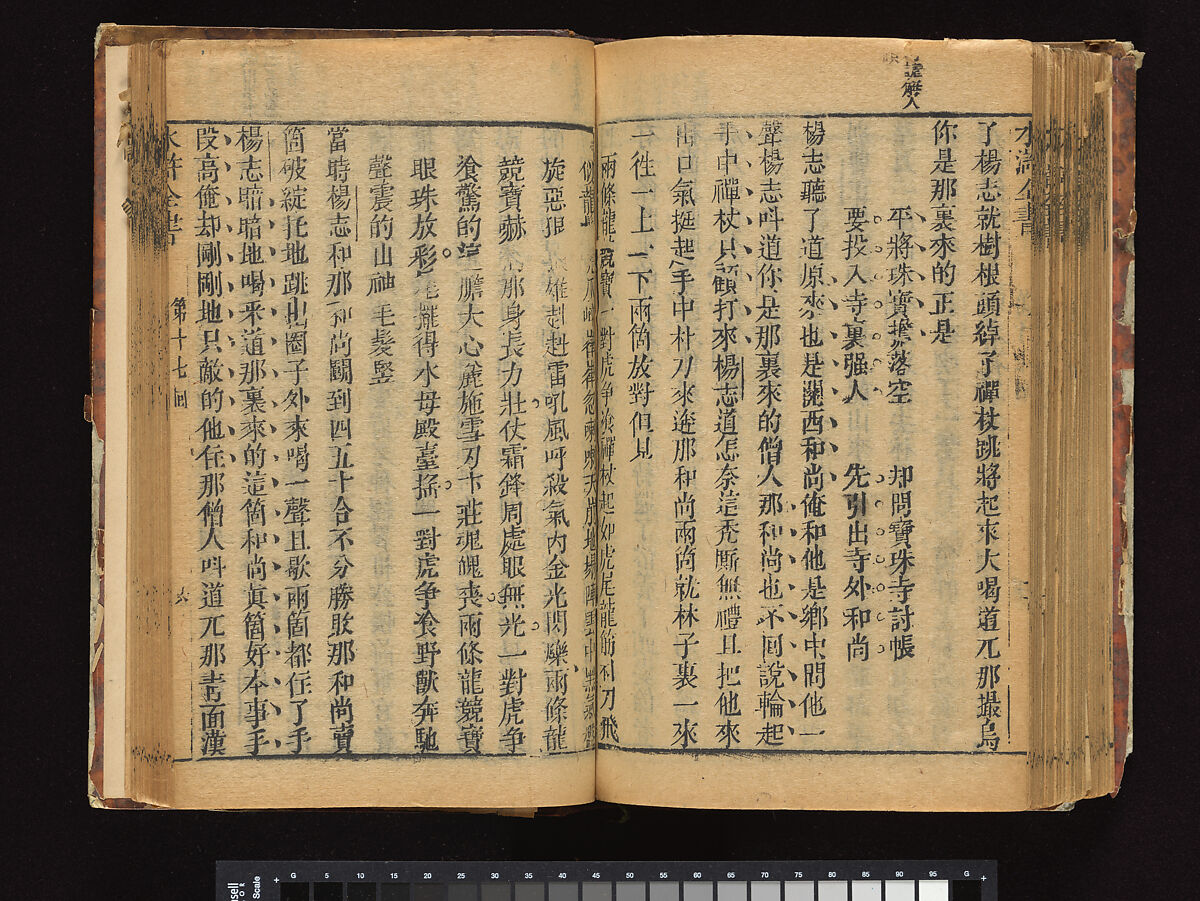 水滸全書
了楊志就樹根頭綽了禪杖跳將起來大喝道兀那撮鳥
你是那裏來的正是
平將珠寶擔落空 却問寶珠寺討帳
要投入寺裏强人 先引出寺外和尚
楊志聽了道原來也是關西和尚俺和他是鄉中問他一
聲楊志呌道你是那裏來的僧人那和尚也不回說輪起
手中禪杖只顧打來楊志道怎奈這秃厮無禮且把他來
出口氣挺起手中朴刀來迯那和尚兩箇就林子裏一來
一往一上一下兩箇放對但見
兩條龍競寶一對虎争飡禪杖起如虎尾龍筋朴刀飛
似龍
旋惡狠 雄赳赳雷吼風呼殺氣内金光閃爍兩條龍
競寶赫 那身長力壯仗霜鋒周處眼無光一對虎争
飡驚的這膽大心麄施雪刃卞莊魂魄喪兩條龍競寶
眼珠放彩 擺得水母殿臺摇一對虎争飡野獸奔馳
聲震的山 毛髪竪
當時楊志和那 和尚鬭到四五十合不分勝敗那和尚賣
箇破綻托地跳出圈子外來喝一聲且歇兩箇都住了手
楊志暗暗地喝采道那裏來的這箇和尚真箇好本事手
段高俺却剛剛地只敵的他住那僧人呌道兀那青面漢
水滸全書 第十七回 六